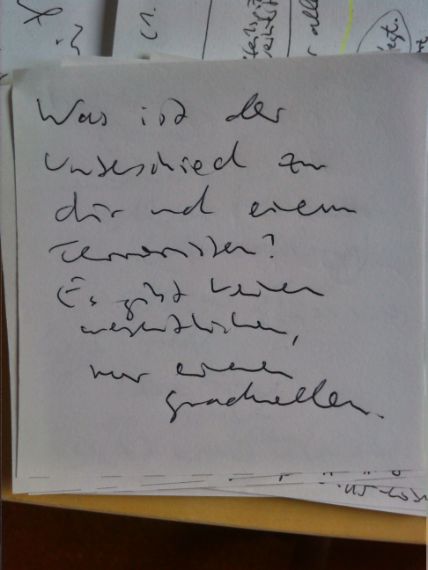 Was ist der
Unterschied zu
dir und einem
Terroristen?
Es gibt keinen
wesentlichen,
nur einen
graduellen.